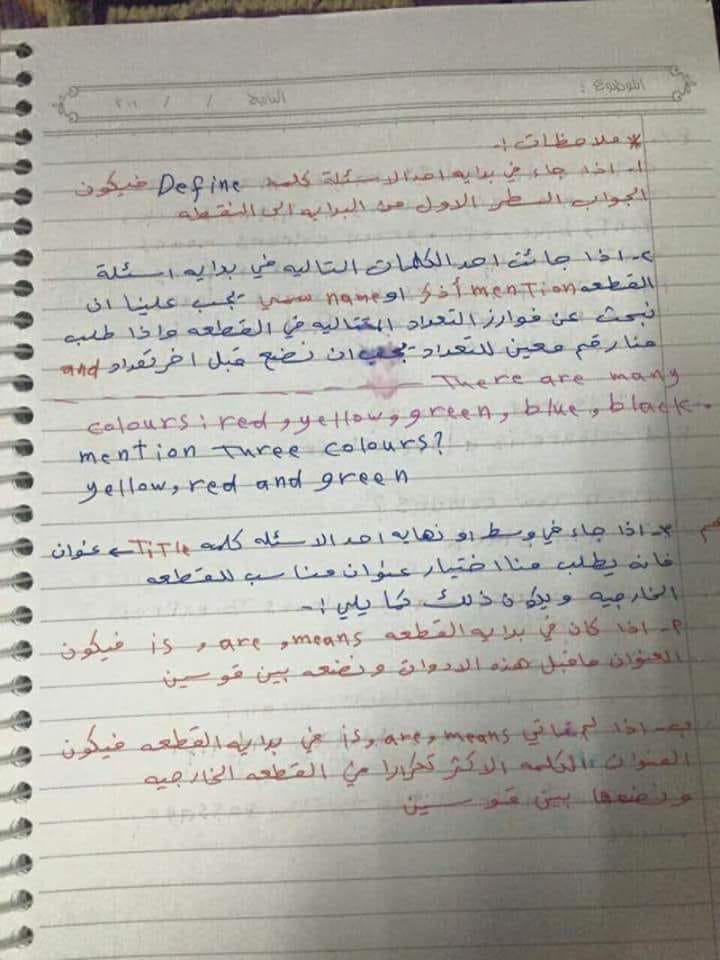 الموضوع :
التاريخ / / ٢٠١
* ملاحظات :-
١- اذا جاء في بدايه احد الاسئلة كلمه Define فيكون
الجواب السطر الاول من البدايه الى النقطه
٢- اذا جائت احد الكلمات التاليه في بدايه اسئلة
القطعه mention أذكر او name سمي يجب علينا ان
نبحث عن فوارز التعداد المتتاليه في القطعه واذا طلب
منا رقم معين للتعداد يجب ان نضع قبل اخر تعداد and
There are many
colours: red, yellow, green, blue, black.
mention Three colours?
yellow, red and green
٣- اذا جاء في وسط او نهايه احد الاسئله كلمه TiTle ← عنوان
فانه يطلب منا اختيار عنوان مناسب للقطعه
الخارجيه ويكون ذلك كما يلي :-
٢- اذا كان في بدايه القطعه is, are, means فيكون
العنوان ماقبل هذه الادوات ونضعه بين قوسين
ب- اذا لم تاتي is, are, means في بدايه القطعه فيكون
العنوان الكلمه الاكثر تكرارا في القطعه الخارجيه
ونضعها بين قوسين